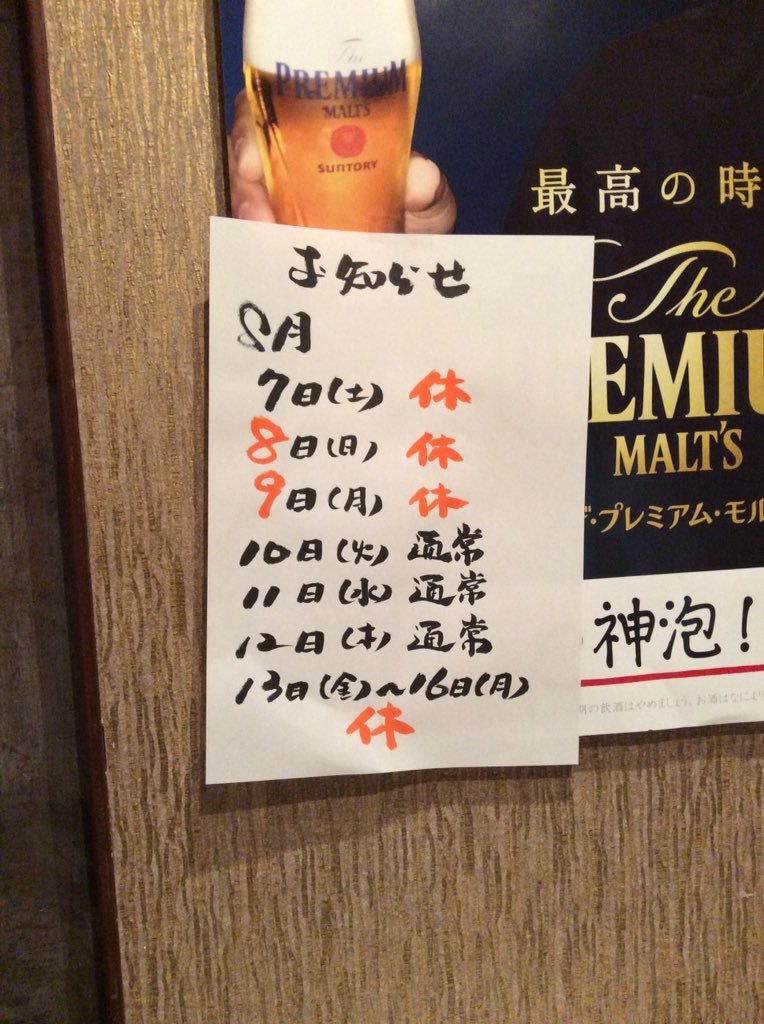 The
PREMIUM
MALT'S
SUNTORY
最高の時
The
EMIU
MALT'S
・プレミアム・モル
神泡!
の飲酒はやめましょう。お酒はなにより
お知らせ
8月
7日(土) 休
8日(日) 休
9日(月) 休
10日(火) 通常
11日(水) 通常
12日(木) 通常
13日(金)~16日(月)
休